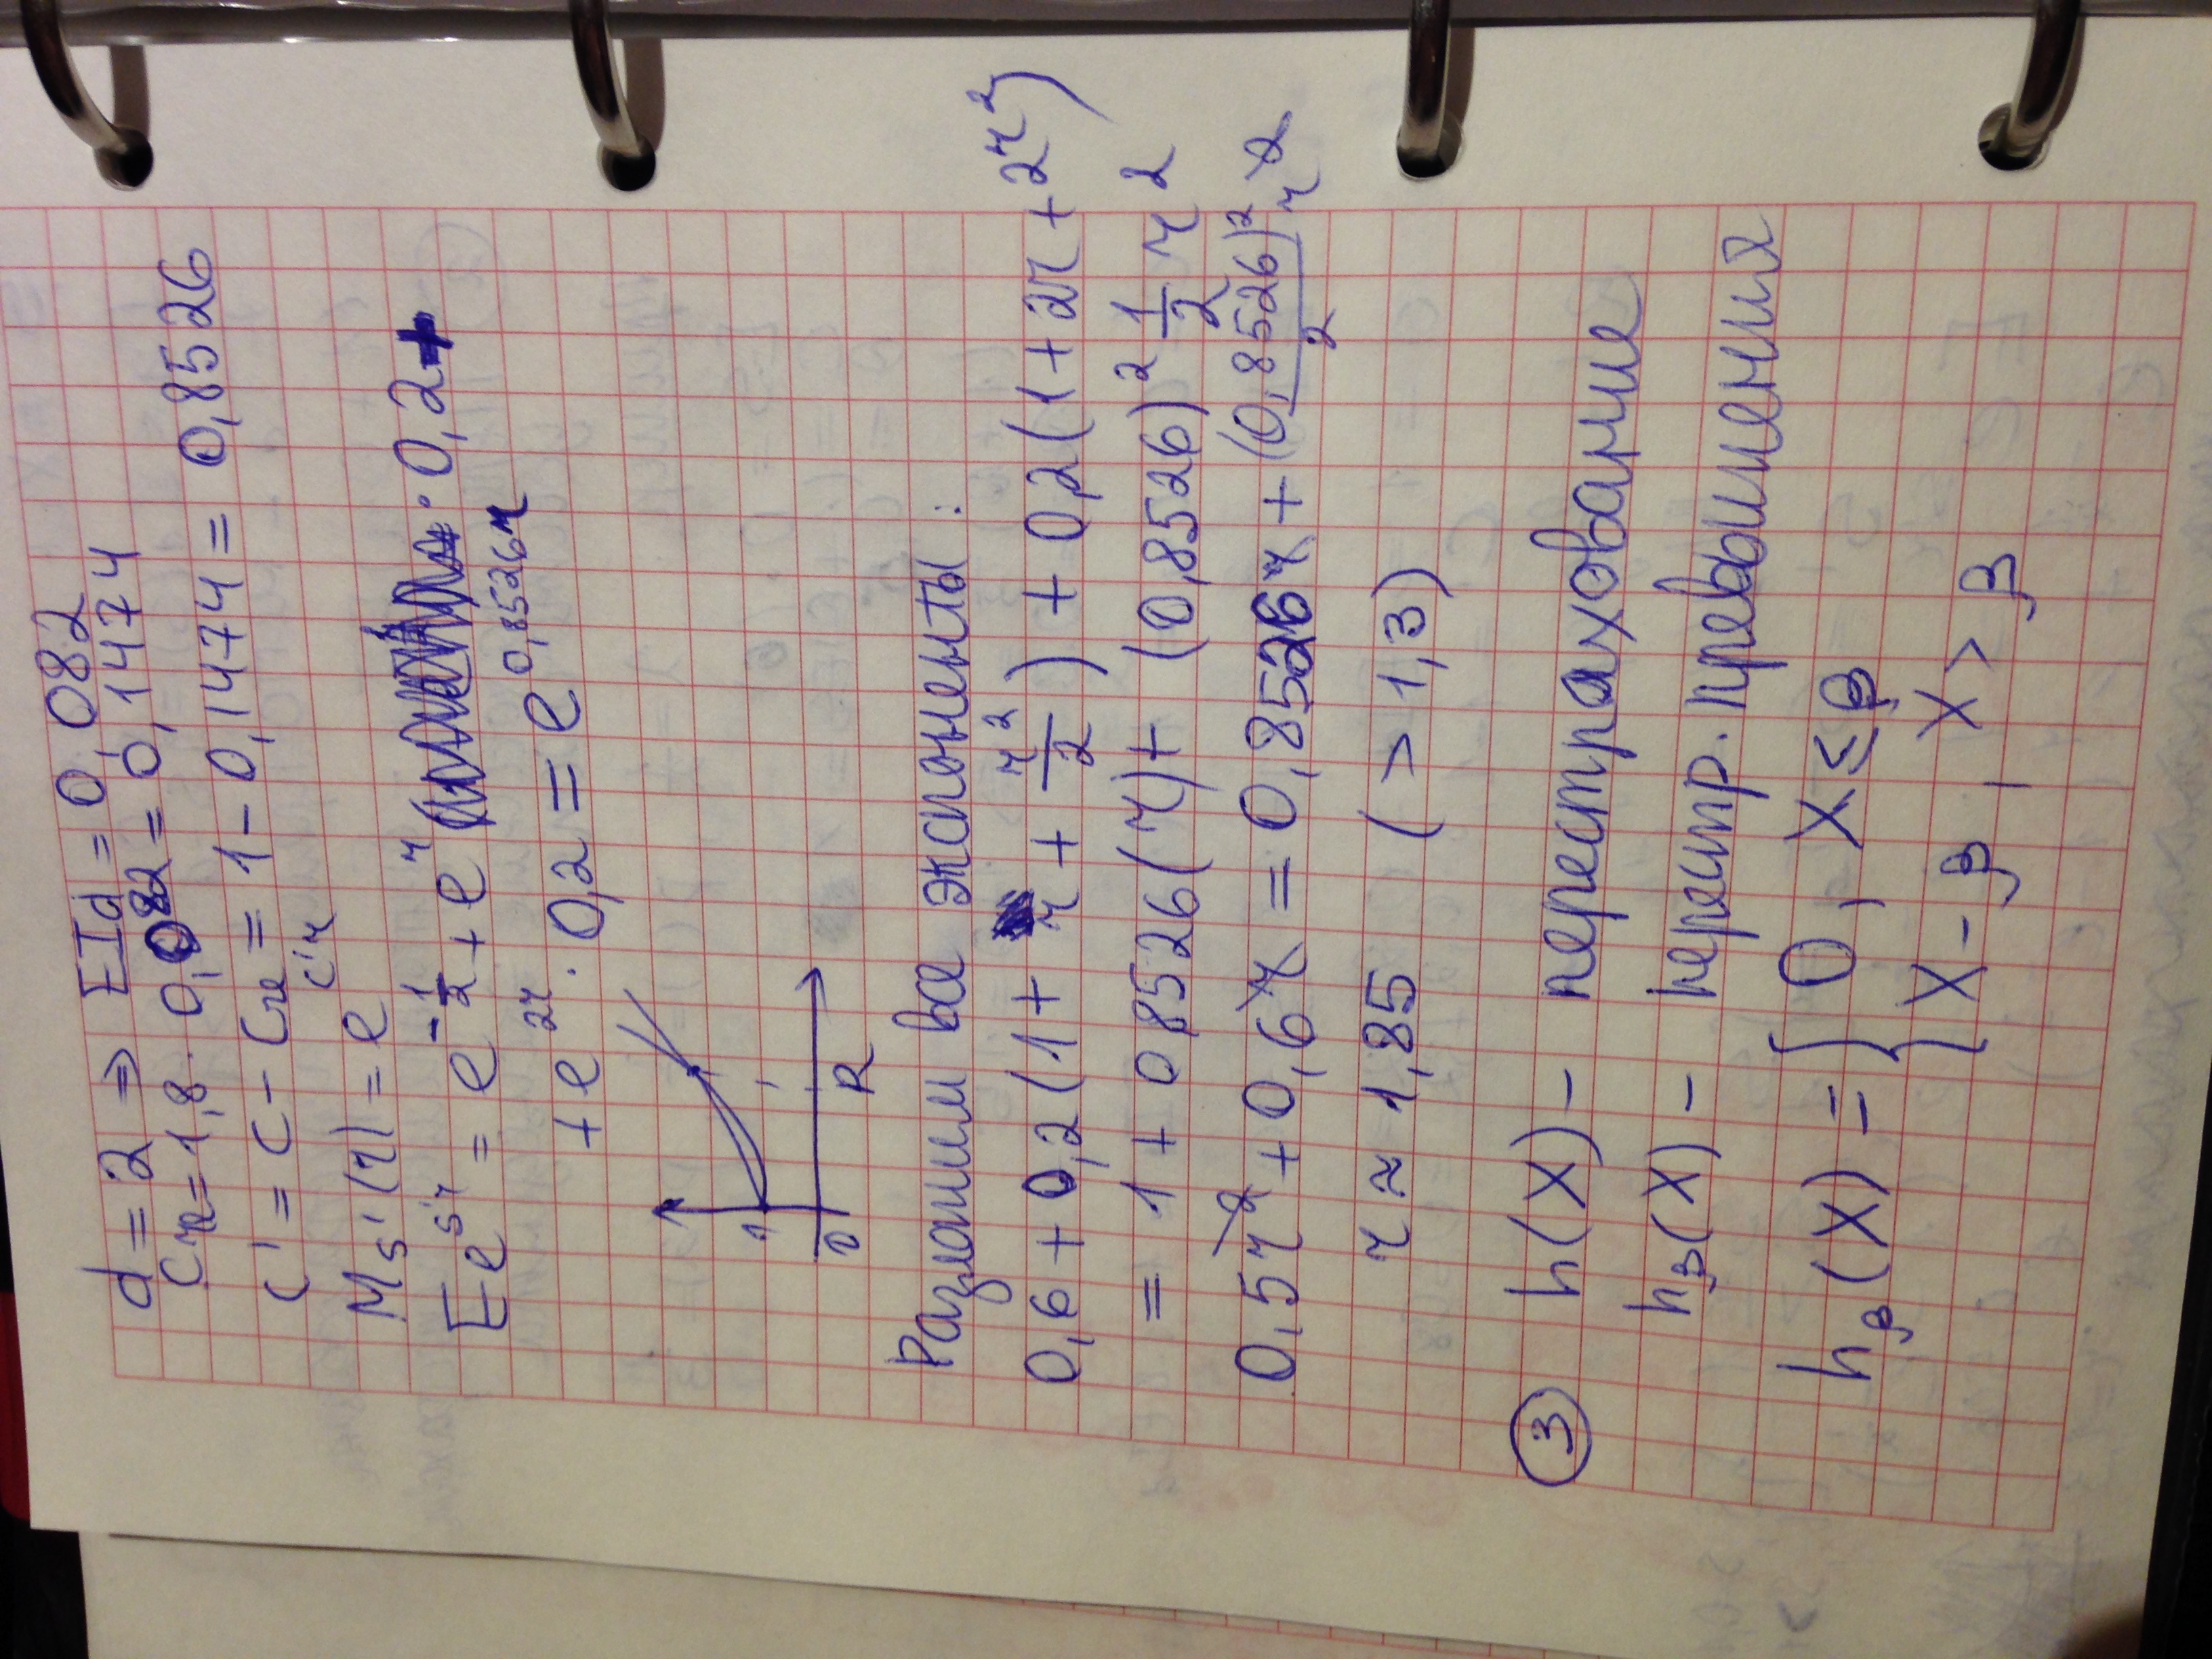 d = 2 ⇒ EId = 0,082
Cre = 1,8 · 0,082 = 0,1474
C' = C - Cre = 1 - 0,1474 = 0,8526
Ms'(r) = e^{c'r}
Ee^{s'r} = e^{-1/2} + e^r · 0,2 +
+ e^{2r} · 0,2 = e^{0,8526r}
1
0 R
Разложим все экспоненты:
0,6 + 0,2(1 + r + r²/2) + 0,2(1 + 2r + 2r²)
= 1 + 0,8526(r) + (0,8526)² 1/2 r²
0,5r² + 0,6r = 0,8526r + (0,8526)²/2 r²
r ≈ 1,85 (> 1,3)
③ h(X) - перестрахование
hβ(X) - перестр. превышения
hβ(X) = { 0, X ≤ β
{ X - β, X > β